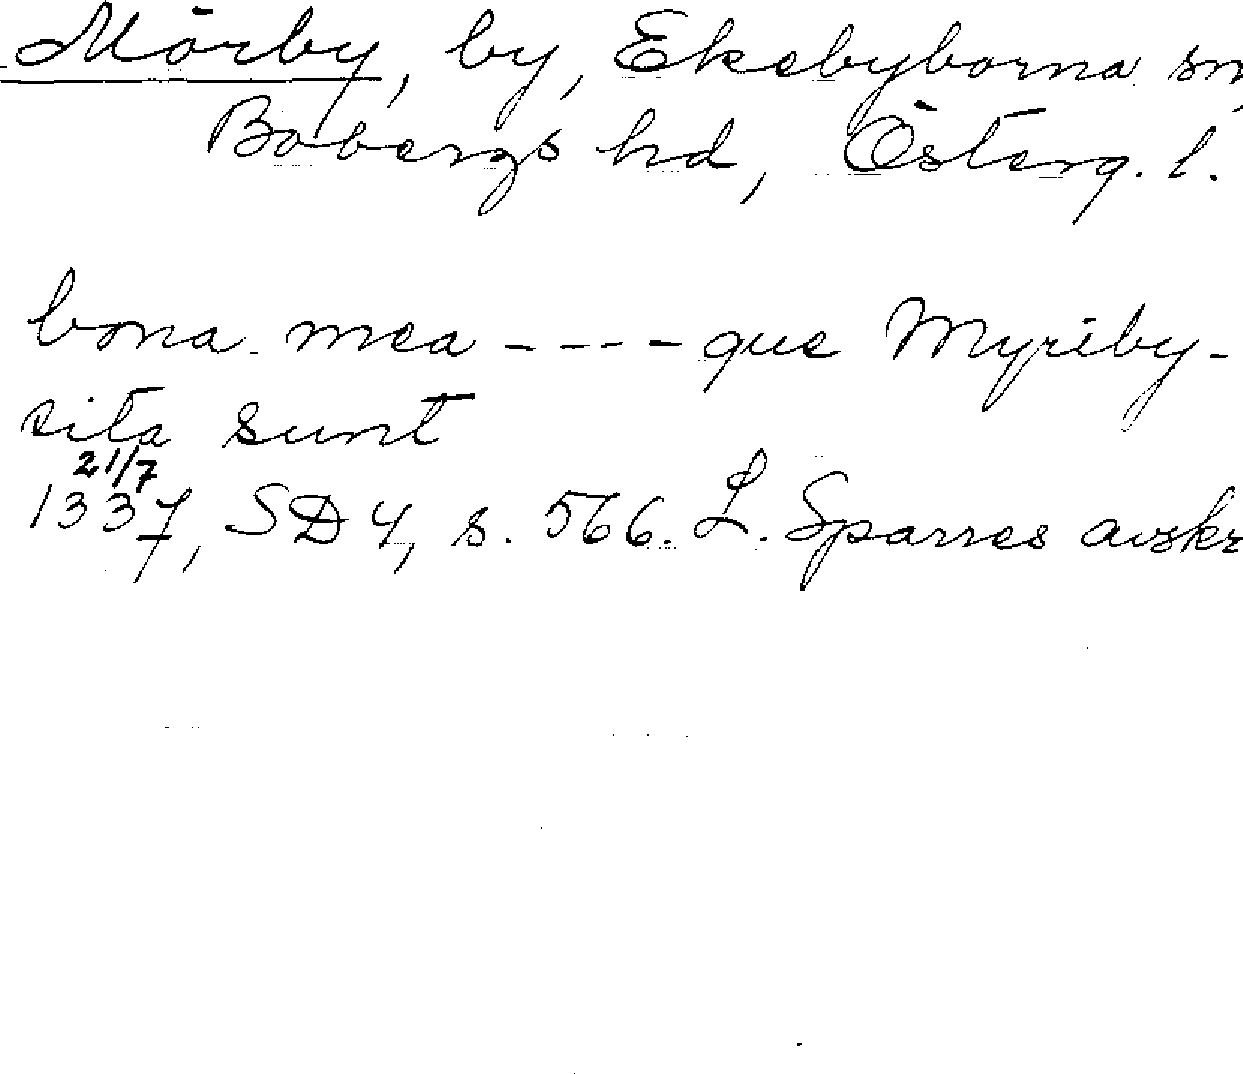 Mörby, by, Ekebyborna sn,
Bobergs hd, Österg. l.
bona mea - - - - que Myriby-
sita sunt
21/7
1337, SD 4, s. 566. L. Sparres avskr